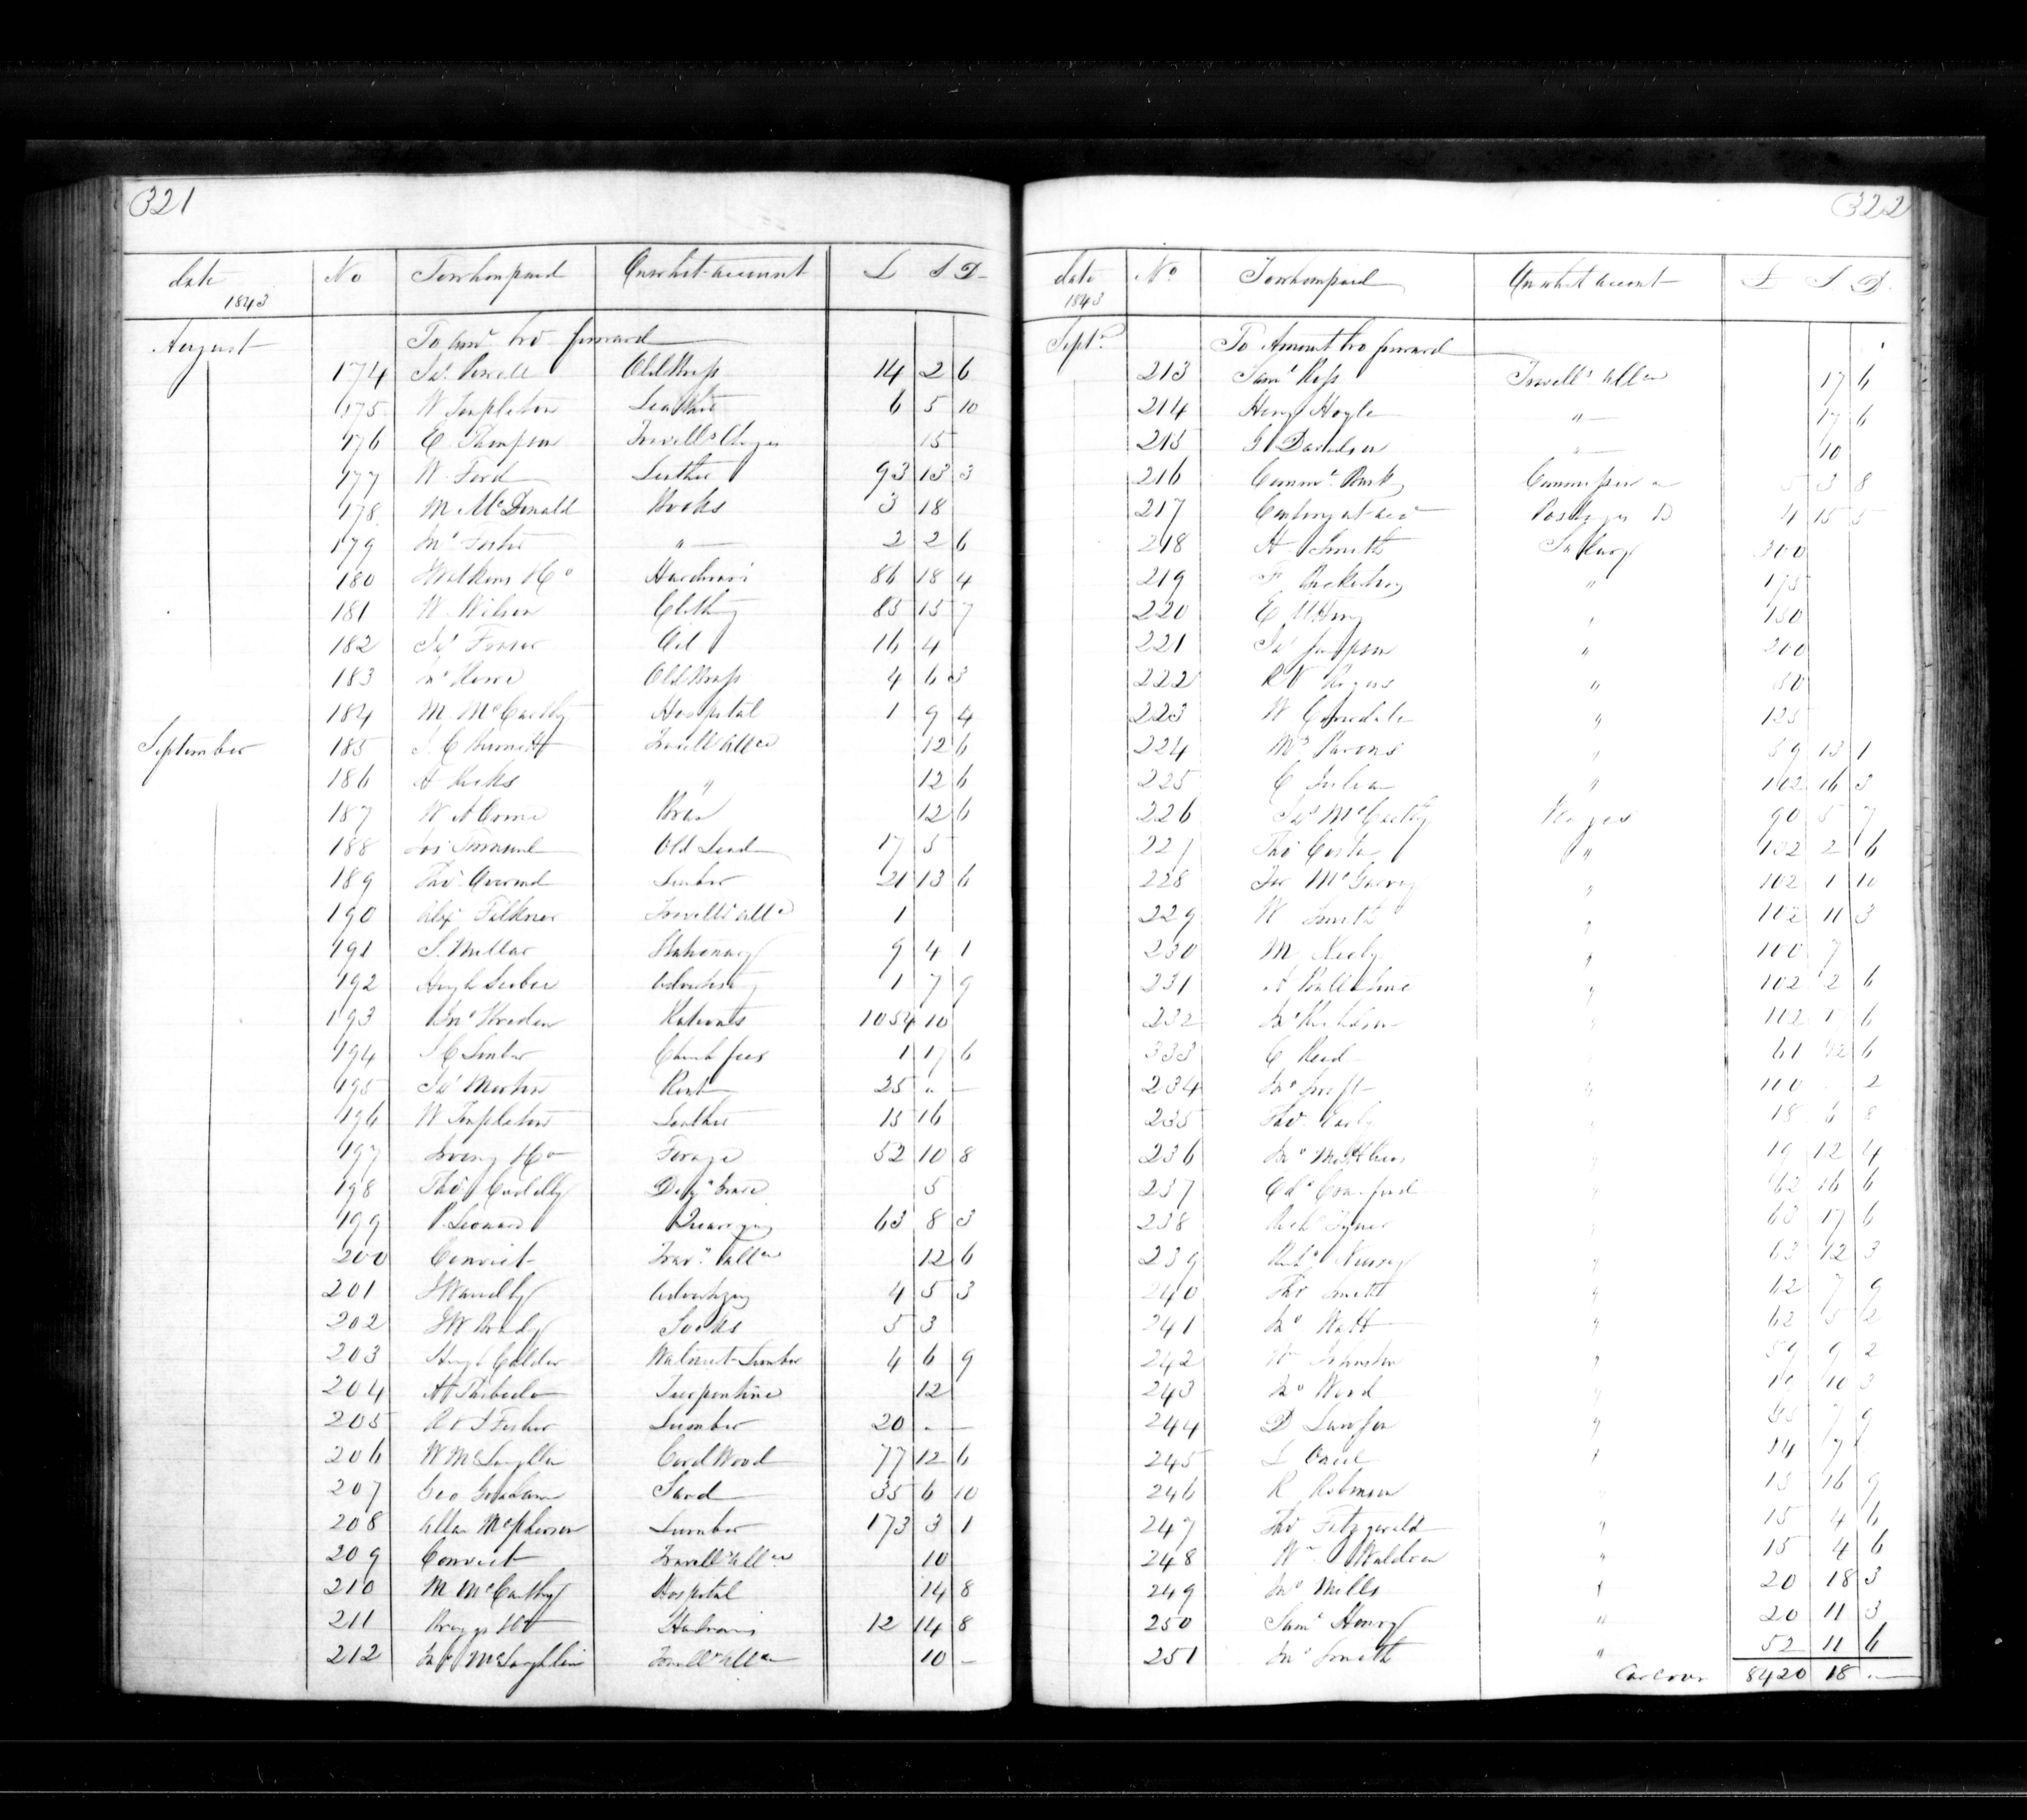 321
date 1843 No To whom paid On what account L S D
August To amt. bro forward
174 Jas. Powell Old Brass 14 2 6
175 W Templeton Leather 6 5 10
176 E. Thompson Travellg Charges 15
177 W. Ford Leather 93 13 3
178 M. McDonald Books 3 18
179 Jno Foster " 2 2 6
180 Watkins & Co Hardware 86 18 4
181 W. Wilson Clothing 85 15 7
182 Jas Fraser Oil 16 4
183 Jno Old Brass 4 6 3
184 M. McCarthy Hospital 1 9 4
September 185 J. C Burnett Travellg Allce 12 6
186 A Hicks " 12 6
187 W A Bran 12 6
188 Jos Old Lead 17 5
189 Thos. Overend Lumber 21 13 6
190 Alexr Falkner Travellg Allce 1
191 J. Millar Stationary 9 4 1
192 Hugh Advertising 1 7 9
193 Jno Breden Rations 1054 10
194 fees 1 17 6
195 Jas Morton Rent 25 " —
196 W Templeton Leather 15 16
197 Irving & Co Forage 52 10 8
198 Thos 5
199 P. Leonard Quarrying 63 8 3
200 Convict Travg Allce 12 6
201 Advertizing 4 5 3
202 J W Brady Socks 5 3
203 Hugh Calder Walnut Lumber 4 6 9
204 Turpentine 12
205 R & J Fisher Lumber 20 — —
206 W McLaughlin Cord Wood 77 12 6
207 Geo Graham Sand 35 6 10
208 Allan McPherson Lumber 173 3 1
209 Convict Travellg Allce 10
210 M McCarthy Hospital 14 8
211 Briggs & Co Hardware 12 14 8
212 Jno McLaughlin Travellg Allce 10 —
322
date 1843 No. To whom paid On what account £ S D.
Septr. To Amount bro forward
213 Saml Ross Travellg Allce 17 6
214 Henry Hoyle " 17 6
215 G Davidson " 10
216 Comml. Bank Commission 5 3 8
217 Contingent acct Postages 4 15 5
218 H. Smith Salary 300
219 F. 175
220 E Utting 150
221 Jas Sampson " 200
222 R V Rogers " 50
223 W Coverdale " 125
224 Mrs Parons , 59 13 1
225 C Julian " 112 16 3
226 Jas McCarthy Wages 90 5 7
227 Thos Costen " 102 2 6
228 Jas McGarvey " 102 1 10
229 W Smith " 102 11 3
230 M Neely " 100 7
231 A Ballentine " 102 2 6
232 Jno Richardson 112 17 6
333 C Read 61 12 6
234 Jno Swift 110 2
235 Thos. 18 6 8
236 Jno Matthews 19 12 4
237 Edd Crawford 62 16 6
238 Richd Tyner 63 17 6
239 63 12 3
240 Thos Smith " 62 7 9
241 Jno Watt " 62 5 2
242 Wm Johnston " 59 9 2
243 Jno Ward 10 3
244 D Lawson " 7 9
245 L 14 7
246 R Robinson 15 16 9
247 Thos Fitzgerald " 15 4 6
248 Wm Waldron " 15 4 6
249 Jno Mills " 20 18 3
250 Saml Henry " 20 11 3
251 Jno Smith " 52 11 6
Car over 8420 18 —